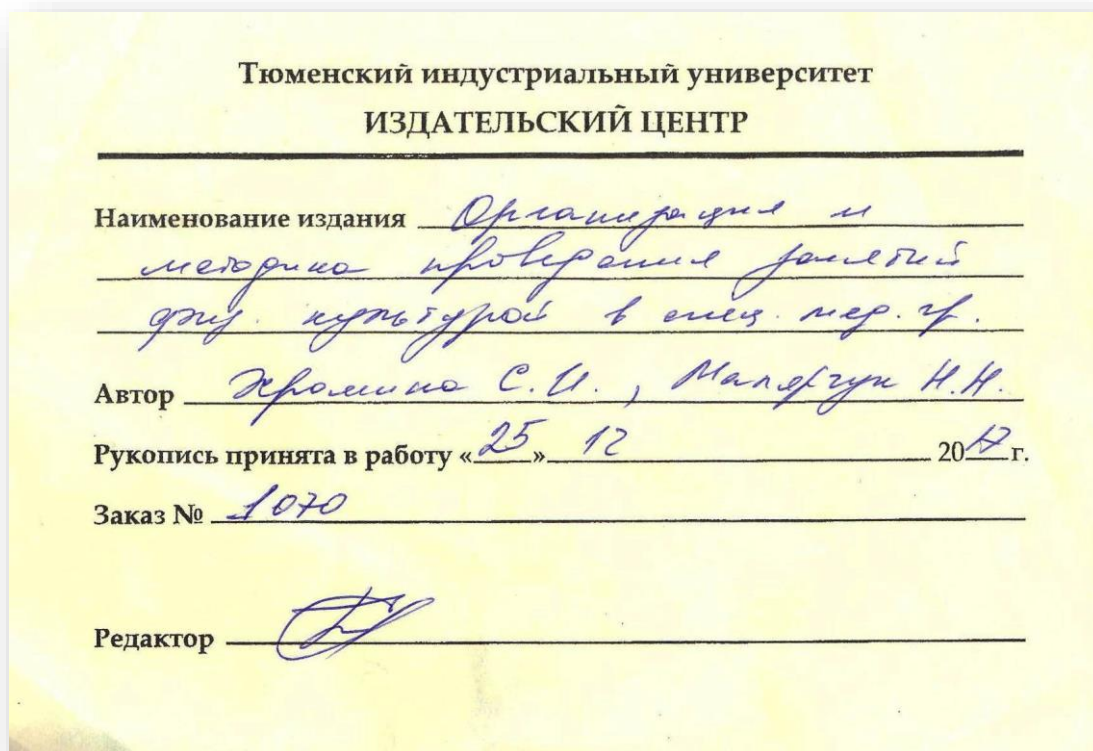 Тюменский индустриальный университет
ИЗДАТЕЛЬСКИЙ ЦЕНТР
Наименование издания Организация и
методика проведения занятий
физ. культурой в спец. мед. гр.
Автор Хромина С.И., Малярчук Н.Н.
Рукопись принята в работу «25» 12 2017 г.
Заказ № 1070
Редактор